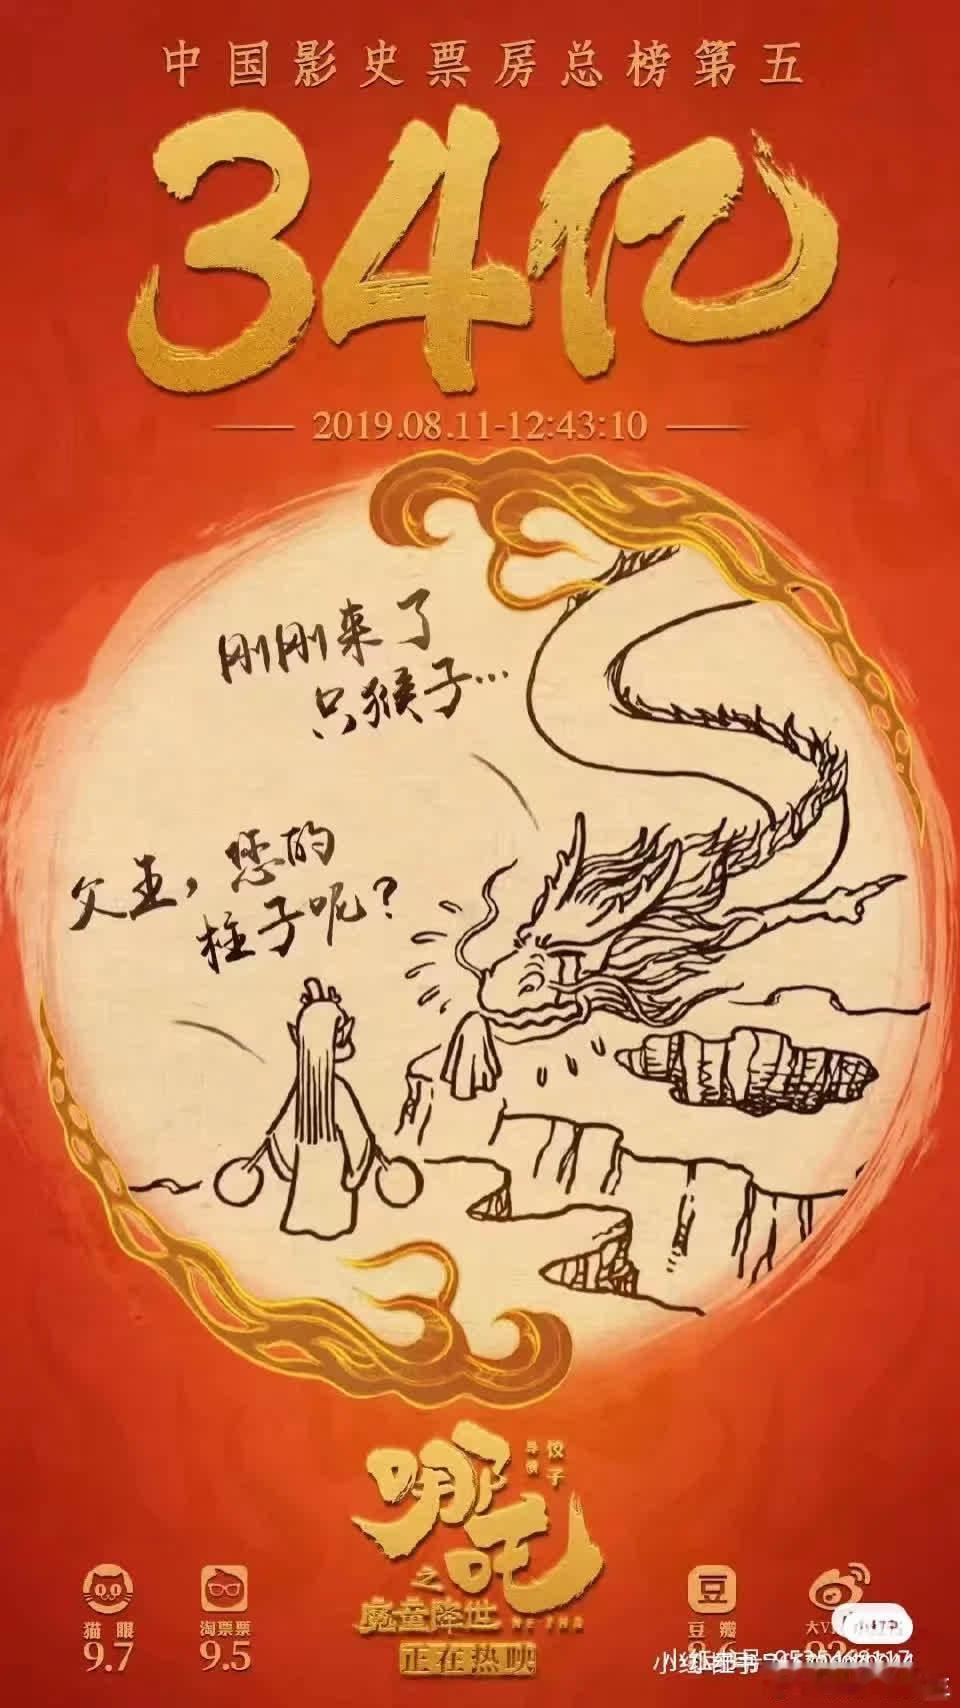 中国影史票房总榜第五
34亿
2019.08.11-12:43:10
刚刚来了
只猴子…
父王，您的
柱子呢？
导演
饺子
哪吒
之
魔童降世
NE ZHA
正在热映
猫眼
9.7
淘票票
9.5
豆
豆瓣
小红书